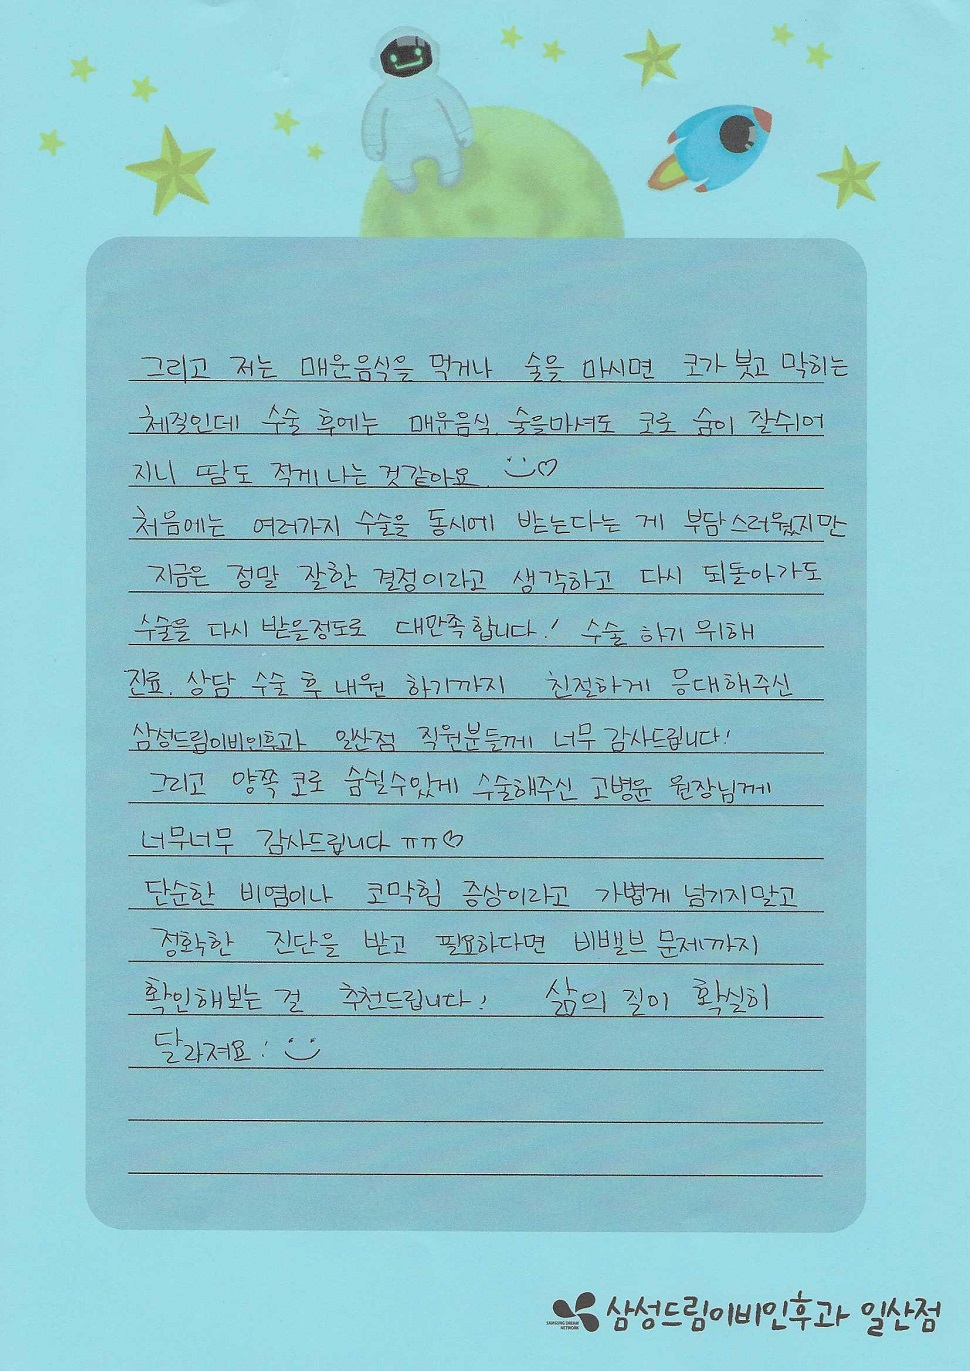 그리고 저는 매운음식을 먹거나 술을 마시면 코가 붓고 막히는
체질인데 수술 후에는 매운음식, 술을마셔도 코로 숨이 잘쉬어
지니 땀도 적게 나는 것같아요.
처음에는 여러가지 수술을 동시에 받는다는 게 부담스러웠지만
지금은 정말 잘한 결정이라고 생각하고 다시 되돌아가도
수술을 다시 받을정도로 대만족합니다! 수술 하기 위해
진료, 상담, 수술 후 내원 하기까지 친절하게 응대해주신
삼성드림이비인후과 일산점 직원분들께 너무 감사드립니다!
그리고 양쪽 코로 숨쉴수있게 수술해주신 고병윤 원장님께
너무너무 감사드립니다 ㅠㅠ♡
단순한 비염이나 코막힘 증상이라고 가볍게 넘기지말고
정확한 진단을 받고 필요하다면 비밸브 문제까지
확인해보는 걸 추천드립니다! 삶의 질이 확실히
달라져요!
SAMSUNG DREAM NETWORK 삼성드림이비인후과 일산점